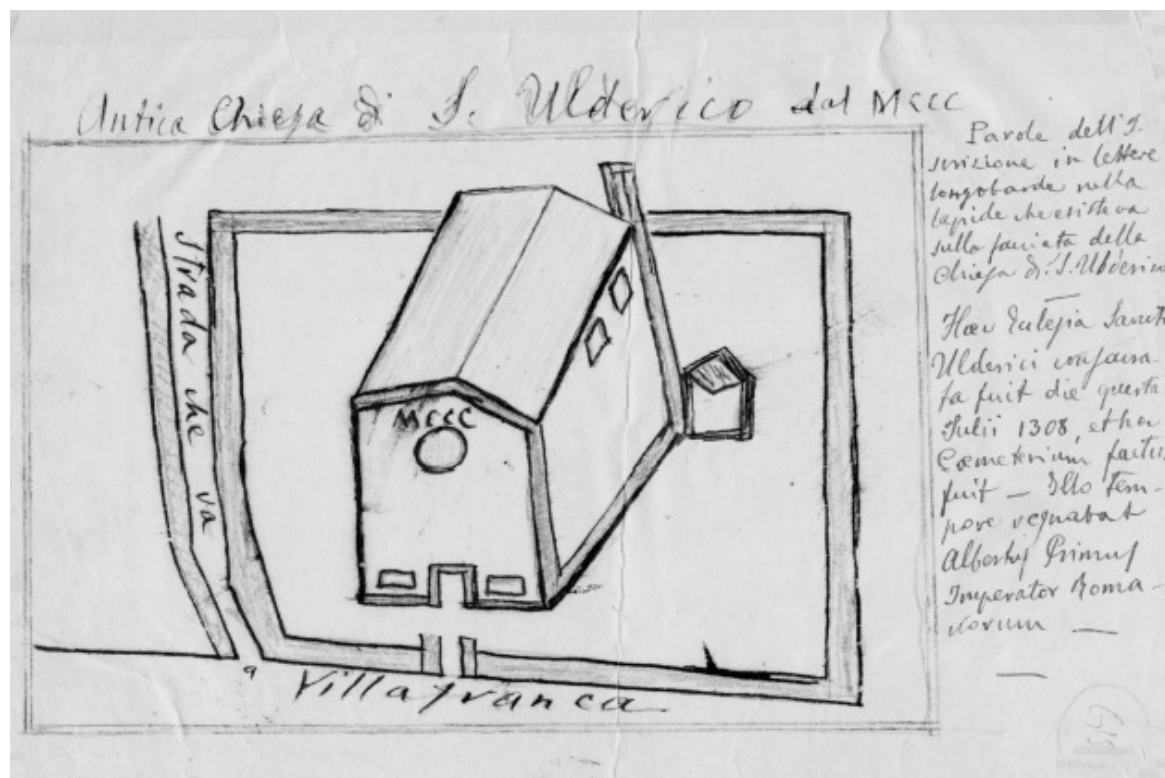 Antica Chiesa di S. Ulderico dal MCCC
Parole dell'I-
scrizione in lettere
longobarde nella
lapide che esisteva
sulla facciata della
Chiesa di S. Ulderico
Haec Eclesia Sancti
Ulderici consacra-
ta fuit die quarta
Julii 1308, et hoc
Coemeterium factum
fuit — Illo tem-
pore regnabat
Albertus Primus
Imperator Roma-
norum —
Strada che va
MCCC
a Villafranca